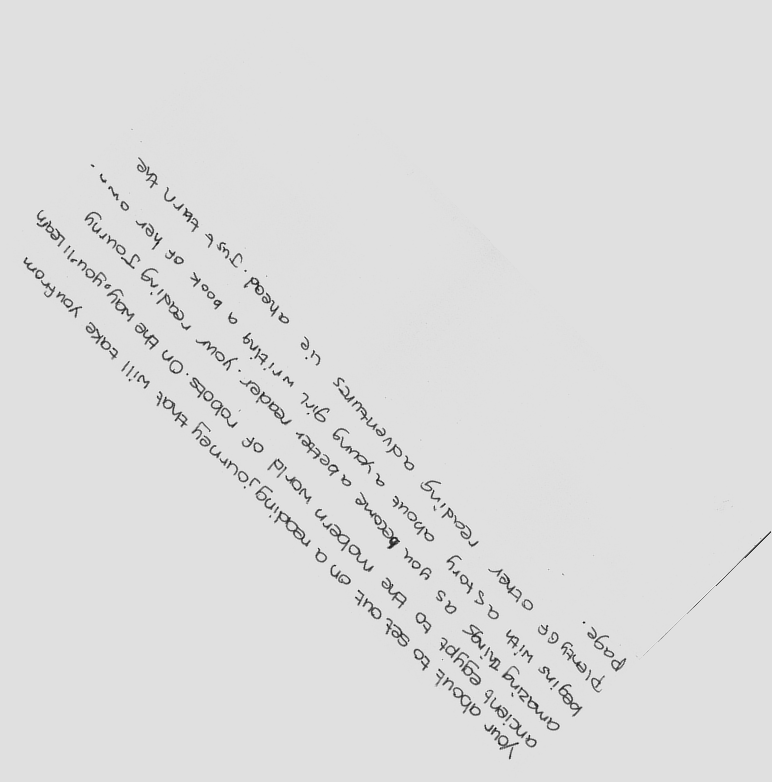 your about to set out on a reading journey that will take you from
ancient egypt to the mobern world of robots. On the way, you'll learn
amazing things as you become a better reader. your reading Journy
begins with a story about a young girl writing a book of her own.
plenty of other reading adventures lie ahead. Just turn the
page.